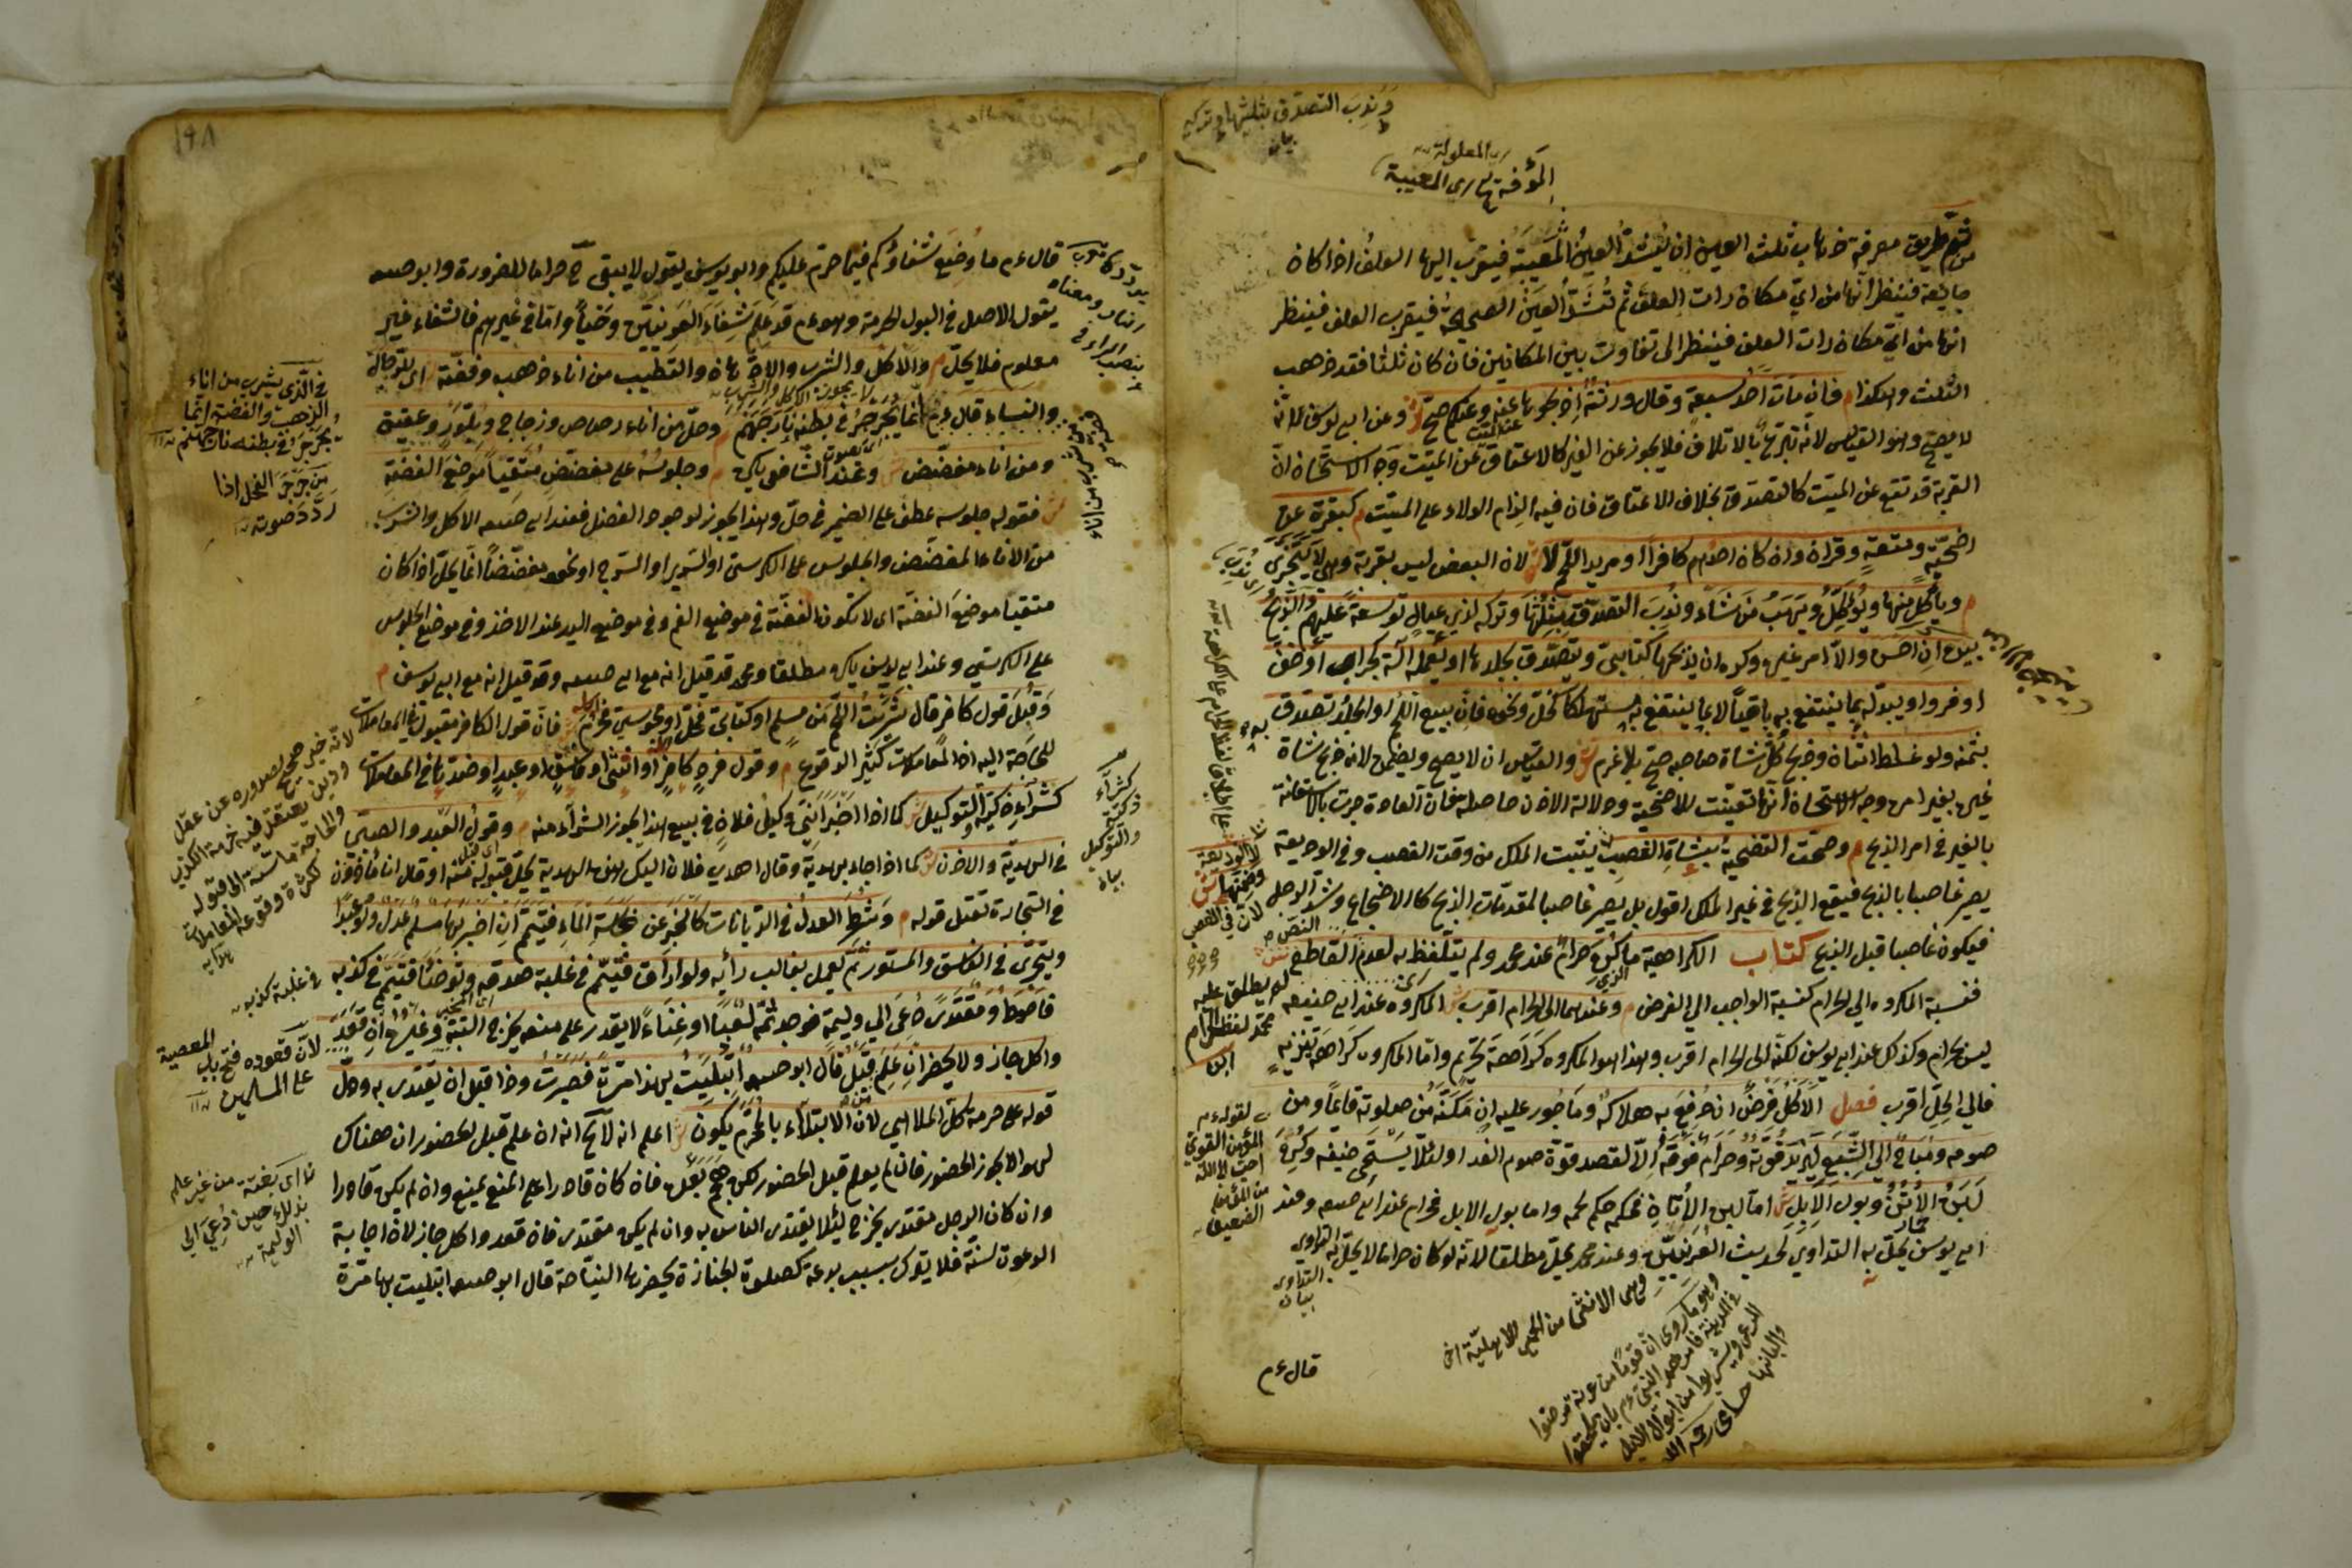 ونُدِبَ التصدّق بثلثها وتركه
بيان
اى المعلولة
المؤفة اى المعيبة
ثم طريق معرفة ذهاب ثلث العين ان يُشَدّ العينُ المَعِيبَة فيقرب اليها العلفُ اذا كان
جايعة فينظر انها من اىّ مكان رأت العلف ثم تُشَدّ العينُ الصحيحةُ فيقرب العلف فينظر
انها من اىّ مكان رأت العلف فينظر الى تفاوت بين المكانين فان كان ثلثا فقد ذهب
الثلث وهكذا م فان مات احد سبعة وقال ورثتُه اذبحوها عنه وعنكم صح ش وعن ابى يوسف انه
لا يصح وهو القياس لانه تبرّع بالاتلاف فلا يجوز عن الغير كالاعتاق عن الميّت وجه الاستحسان انّ
القربة قد تقع عن الميّت كالتصدّق بخلاف الاعتاق فان فيه الزام الولاء على الميّت م كبقرة عن
اضحيّة ومتعةٍ وقران وان كان احدهم كافرا او مريد اللحم لا ش لان البعض ليس بقربة وهى لا تتجزى
م ويأكل منها ويُؤكِلُ ويَهَبُ مَن شاء ونُدِبَ التصدّق بثلثها وتركه لذى عيال توسعة عليهم والذبح
بيده ان احسن والا امر غيره وكره ان يذبحها كتابىّ ويتصدّق بجلدها او يعمله آلة كجراب او خف
او فرو او يبدّله بما ينتفع به باقياً لا بما ينتفع به مستهلكا كخلّ ونحوه فان بيع اللحم او الجلد تصدق
بثمنه ولو غلط اثنان وذبح كلّ شاة صاحبه صح بلا غرم ش والقياس ان لا يصح ويضمن لانه ذبح شاة
غيره بغير امره وجه الاستحسان انها تعينت للاضحية ودلالة الاذن حاصلة فان العادة جرت بالاستعانة
بالغير فى امر الذبح م وصحت التضحية بشاة الغصب لا الوديعة وضمنها ش لان فى الغصب يثبت الملك من وقت الغصب وفى الوديعة
يصير غاصبا بالذبح فيقع الذبح فى غير الملك اقول بل يصير غاصبا لمقدمات الذبح كالاضجاع وشد الرجل
فيكون غاصبا قبل الذبح كتاب الكراهية ما كُرِه حرامٌ عند محمد ولم يتلفظ به لعدم القاطع ش
فنسبة المكروه الى الحرام كنسبة الواجب الى الفرض م وعندهما الى الحرام اقرب ش المكروه عند ابى حنيفه
ليس بحرام وكذا عند ابى يوسف لكنّه الى الحرام اقرب وهذا هو المكروه كَرَاهَةَ تحريم واما المكروه كراهة تنزيهٍ
فالى الحِلّ اقرب فصل الاكلُ فرضٌ ان دُفِعَ به هلاكه وماجور عليه ان مكّنَهُ من صلوته قائماً ومن
صومه ومُباحٌ الى الشِبَع ليزيد قوّته وحرامٌ فوقه الّا لقصد قوّة صوم الغد او لئلا يستحى ضيفه وكُرِه
لَبَنُ الأُتُن وبول الابل ش اما لبن الأتان فحكمه حكم لحمه واما بول الابل فحرام عند ابى حنيفه وعند
ابى يوسف يحلّ به التداوى لحديث العُرنيّين وعند محمد يحلّ مطلقا لانه لو كان حراما لا يحلّ به
التداوى
لم يطلق عليه
محمد لفظ الحرام
لقوله م
المؤمن القوىّ
احبّ الى اللّه
من المؤمن
الضعيف
التداوى
بيان
وهى الانثى من الحمر الاهلية اخى
وهو ما روى ان قوما من عرنة مرضوا
فى المدينة فامرهم النبى ءم بان يلحقوا
الرعى ويشربوا من ابوال الابل
والبانها حسامى رحمه الله
قال ءم
١٩٨
قال ءم ما وُضِعَ شفاؤكم فيما حرّم عليكم وابو يوسف يقول لا يبقى ح حراما للضرورة وابو حنيفه
يقول الاصل فى البول الحرمة وهو ءم قد علم شِفَاءَ العُرنيّين وَحْياً وامّا فى غيرهم فالشفاء غير
معلوم فلا يحلّ م والاكل والشرب والادّهان والتطيب من اناء ذهب وفضّة اى للرجال
والنساء قال ءم انما يجرجرُ فى بطنه نار جهنم م وحلّ من اناء رصاص وزجاج وبلّور وعقيق
ومن اناء مفضّض ش وعند الشافعى يكره م وجلوسُهُ على مفضّضٍ متّقياً موضعَ الفضّةِ
ش فقوله جلوسه عطف على الضمير فى حلّ وهذا يجوز لوجود الفصل فعند ابى حنيفه الاكل والشرب
من الاناء المفضّض والجلوس على الكرسىّ او السرير او السّرج او نحوه مفضّضاً انما يحلّ اذا كان
متقيا موضعَ الفضّة اى لا تكون الفضّة فى موضع الفم وفى موضع اليد عند الاخذ وفى موضع الجلوس
على الكرسى وعند ابى يوسف يكره مطلقا ومحمد قد قيل انه مع ابى حنيفه وقد قيل انه مع ابى يوسف م
وقُبِلَ قول كافر قال شَرَيتُ اللحم من مسلم او كتابىّ فحلّ او مجوسىّ فحرُم ش فانّ قول الكافر مقبول فى المعاملات
للحاجة اليه اذ المعاملات كثير الوقوع م وقول فردٍ كافرٍ او انثى او فاسقٍ او عبدٍ او ضدّها فى المعاملات
كشراءٍ ذُكِرَ والتوكيل ش كما اذا اخبر انّى وكيل فلان فى بيع هذا يجوز الشراء منه م وقول العبد والصبىّ
فى الهديّة والاذن ش كما اذا جاء بهديّة وقال اهدى فلان اليك هذه الهدية يحلّ قبوله منه او قال انا مأذون
فى التجارة تقبل قوله م وشُرِطَ العدلُ فى الديانات كالخبر عن نجاسة الماء فيتيمّم ان اخبر بها مسلم عدل ولو عبدا
ويتحرّى فى الفاسق والمستور ثم يعمل بغالب رأيه ولو اراق فتيمّم فى غلبة صدقه وتوضّأ فتيمّم فى كذبه
فاحوط ومقتدىً دُعى الى وليمة فوجد ثمّه لعبا او غناءً لا يقدر على منعه يخرج البتّة وغيره ان قعد
واكل جاز ولا يحضر ان علم قبلُ قال ابو حنيفه ابتُلِيتُ بهذا مرّةً فصبرت وذا قبل ان يقتدى به ودلّ
قوله على حرمة كلّ الملاهى لانّ الابتلاء بالمحرّم يكون ش اعلم انه لا يخ انه ان علم قبل الحضور ان هناك
لهوا لا يجوز الحضور فان لم يعلم قبل الحضور لكن هجم بغتة فان كان قادرا على المنع يمنع وان لم يكن قادرا
وان كان الرجل مقتدى يخرج لئلا يقتدى الناس به وان لم يكن مقتدى فان قعد واكل جاز لان اجابة
الدعوة سنّة فلا يترك بسبب بدعة كصلوة الجنازة يحضرها النياحة قال ابو حنيفه ابتليت بها مرّة
فى الّذى يشرب من اناء
الذهب والفضة انما
يُجَرْجِرُ فى بطنه نار جهنم
من جَرجَرَ الفحل اذا
ردّد صوته
كشراء
ذكر
والتوكيل
لانه خبر صحيح لصدوره عن عقل
ودين يعتقد فيه حرمة الكذب
والحاجة ماسّة الى قبوله
لكثرة وقوعه المعاملات
هدايه
فى غلبة كذبه
لانّ قعوده فتح باب المعصية
على المسلمين
اى بغتة من غير علم
بذلك حين دُعى الى
الوليمة